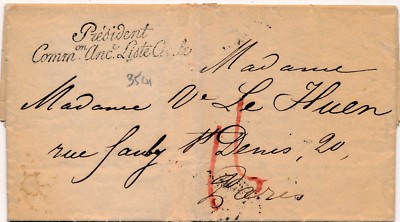 Président
Comm.on Anc.e Liste Civile
35cu
Madame
Madame Ve Le Huen
rue faubg St Denis, 20,
Paris